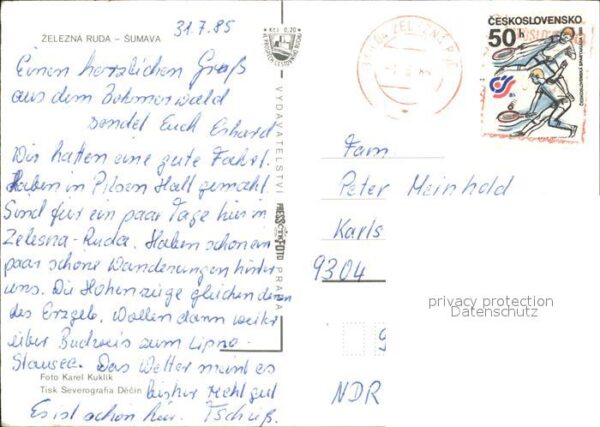 31.7.85
ŽELEZNÁ RUDA – ŠUMAVA
Kčs 0,20
Einen herzlichen Gruß
aus dem Böhmerwald
sendet Euch Erhard
Wir hatten eine gute Fahrt.
Haben in Pilsen Halt gemacht.
Sind für ein paar Tage hier in
Zelesna-Ruda. Haben schon ein
paar schöne Wanderungen hinter
uns. Die Höhenzüge gleichen denen
des Erzgeb. Wollen dann weiter
über Budweis zum Lipno-
Stausee. Das Wetter meint es
bisher recht gut
Es ist schön hier. Tschüß.
Foto Karel Kuklík
Tisk Severografia Děčín
VYDAVATELSTVÍ
PRESSFOTO
PRAHA
ČESKOSLOVENSKO
50 h
ČESKOSLOVENSKÁ SPARTAKIÁDA 1985
Fam
Peter Meinhold
Karls
9304
privacy protection
Datenschutz
9
NDR